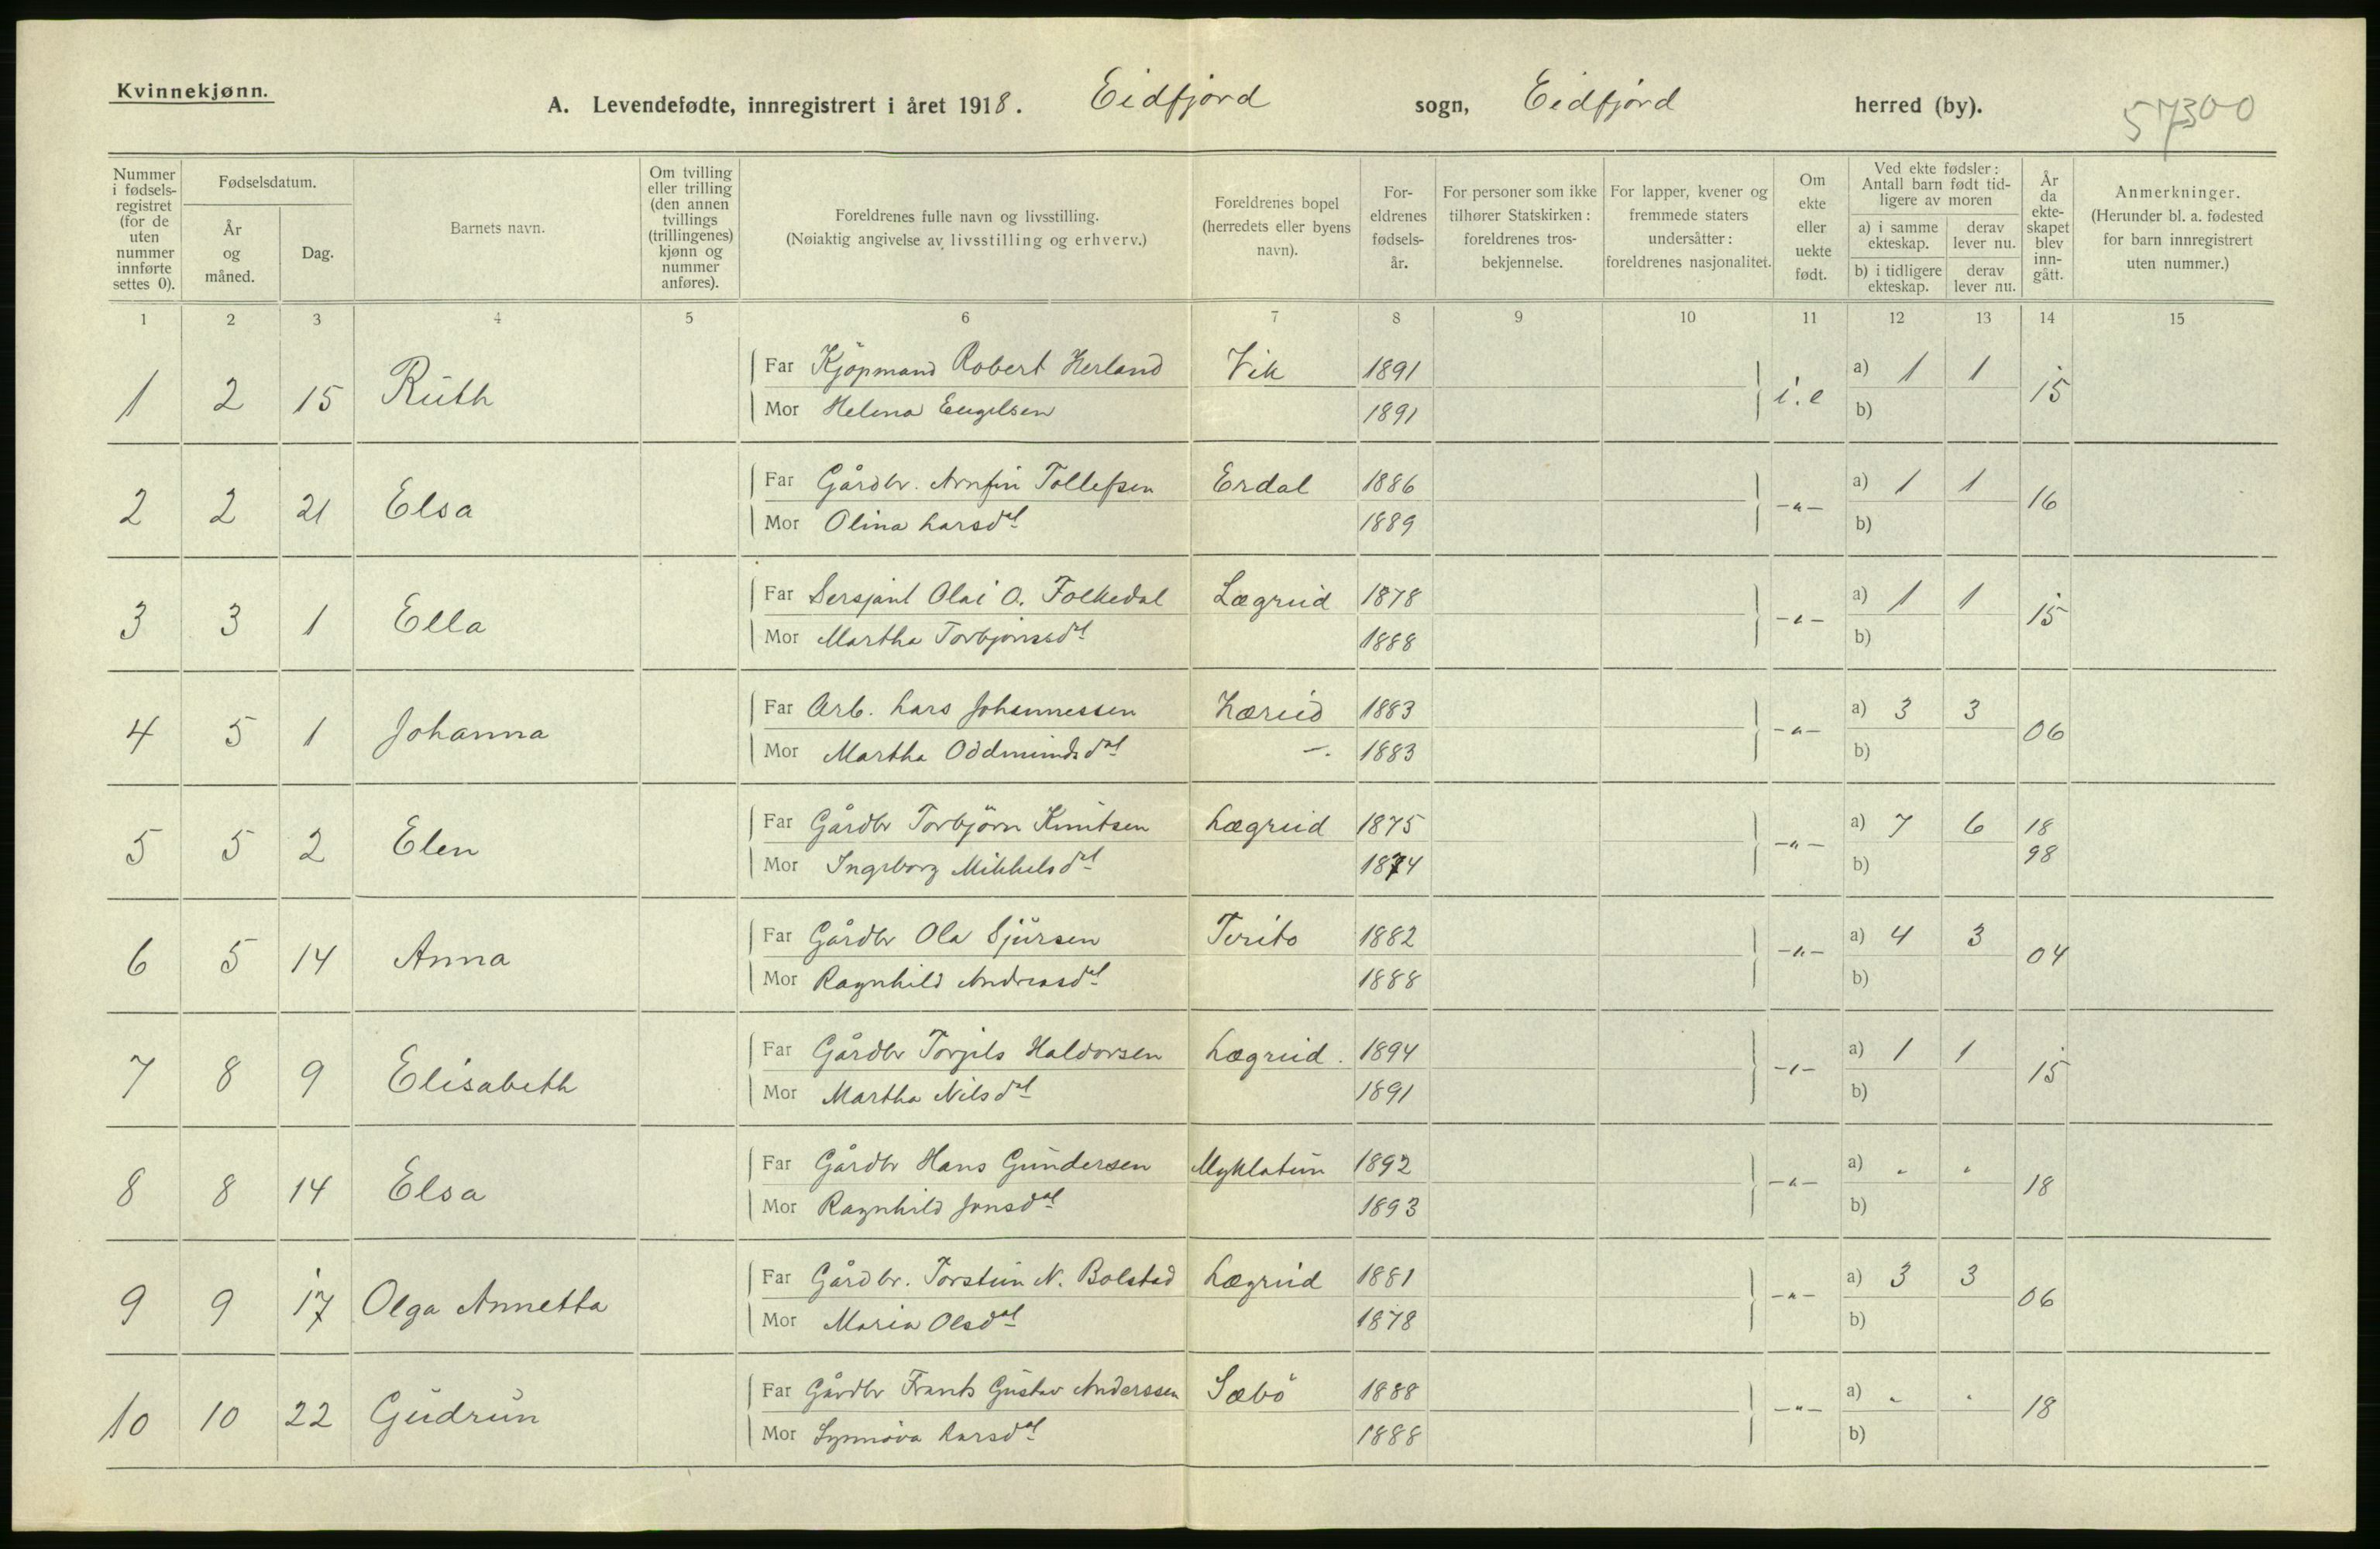 Kvinnekjønn.
A. Levendefødte, innregistrert i året 1918. Eidfjord sogn, Eidfjord herred (by). 57300
Nummer i fødsels-registret (for de uten nummer innførte settes 0).
Fødselsdatum.
År og måned.
Dag.
Barnets navn.
Om tvilling eller trilling (den annen tvillings (trillingenes) kjønn og nummer anføres).
Foreldrenes fulle navn og livsstilling.
(Nøiaktig angivelse av livsstilling og erhverv.)
Foreldrenes bopel (herredets eller byens navn).
For-eldrenes fødsels-år.
For personer som ikke tilhører Statskirken: foreldrenes tros-bekjennelse.
For lapper, kvener og fremmede staters undersåtter: foreldrenes nasjonalitet.
Om ekte eller uekte født.
Ved ekte fødsler: Antall barn født tid-ligere av moren
a) i samme ekteskap.
derav lever nu.
b) i tidligere ekteskap.
derav lever nu.
År da ekte-skapet blev inn-gått.
Anmerkninger.
(Herunder bl. a. fødested for barn innregistrert uten nummer.)
1 2 3 4 5 6 7 8 9 10 11 12 13 14 15
1 2 15 Ruth Far Kjöpmand Robert Herland Vik 1891 i. e a) 1 1 15
Mor Helena Engelsen 1891 b)
2 2 21 Elsa Far Gårdbr. Arnfin Tollefsen Erdal 1886 -"- a) 1 1 16
Mor Olina Larsdtr 1889 b)
3 3 1 Ella Far Sersjant Olai O. Folkedal Lægreid 1878 -"- a) 1 1 15
Mor Martha Torbjörnsdtr 1888 b)
4 5 1 Johanna Far Arb. Lars Johannessen 1883 -"- a) 3 3 06
Mor Martha Oddmundsdtr -. 1883 b)
5 5 2 Elen Far Gårdbr Torbjörn Knutsen Lægreid 1875 -"- a) 7 6 18
98
Mor Ingeborg Mikkelsdtr 1874 b)
6 5 14 Anna Far Gårdbr Ola Sjursen 1882 -"- a) 4 3 04
Mor Ragnhild Andreasdtr 1888 b)
7 8 9 Elisabeth Far Gårdbr Torjils Haldorsen Lægreid. 1894 -"- a) 1 1 15
Mor Martha Nilsdtr 1891 b)
8 8 14 Elsa Far Gårdbr Hans Gundersen Myklatun 1892 -"- a) - - 18
Mor Ragnhild Jonsdtr 1893 b)
9 9 17 Olga Annetta Far Gårdbr. Torstein N. Bolstad Lægreid 1881 -"- a) 3 3 06
Mor Maria Olsdtr 1878 b)
10 10 22 Gudrun Far Gårdbr Frants Gustav Anderssen Sæbö 1888 -"- a) - - 18
Mor Synnöva Larsdtr 1888 b)